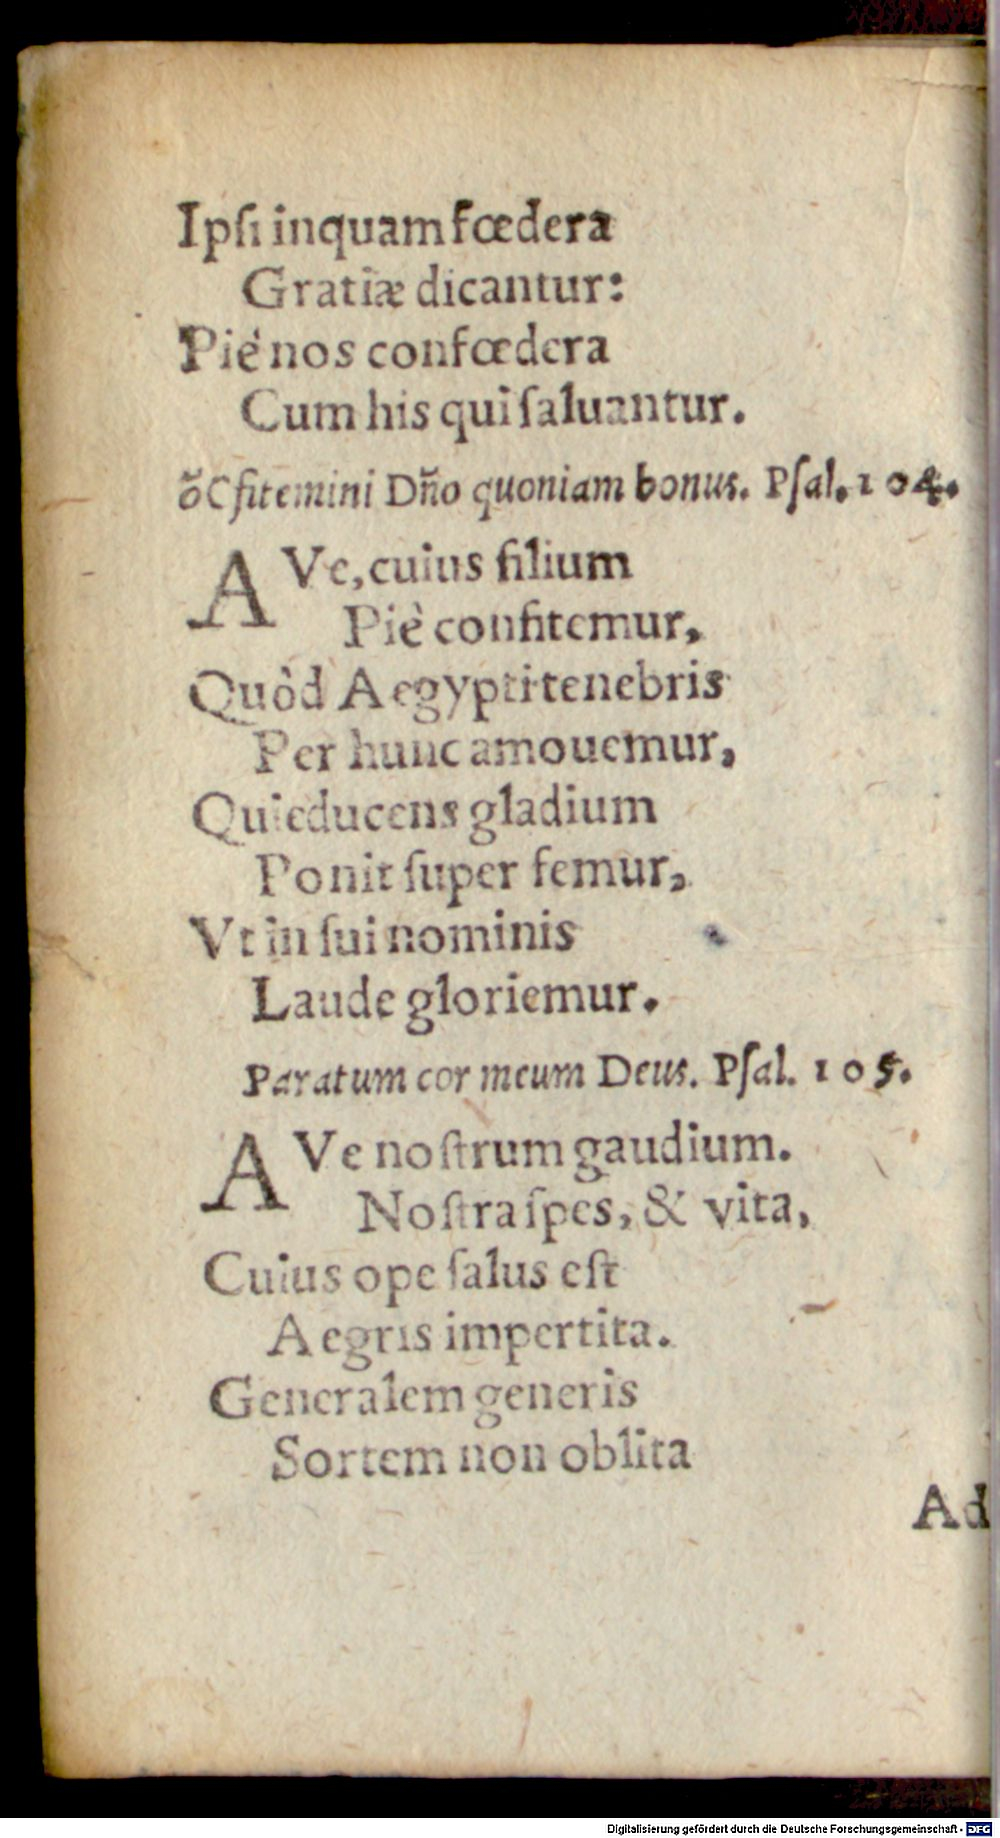 Ipſi inquam fœdera
Gratiæ dicantur:
Piè nos confœdera
Cum his qui ſaluantur.
õCfitemini Dño quoniam bonus. Pſal. 104.
AVe, cuius filium
Piè confitemur,
Quòd Aegypti tenebris
Per hunc amouemur,
Qui educens gladium
Ponit ſuper femur,
Vt in ſui nominis
Laude gloriemur.
Paratum cor meum Deus. Pſal. 105.
AVe noſtrum gaudium.
Noſtra ſpes, & vita,
Cuius ope ſalus eſt
Aegris impertita.
Generalem generis
Sortem non oblita
Ad
Digitalisierung gefördert durch die Deutsche Forschungsgemeinschaft - DFG